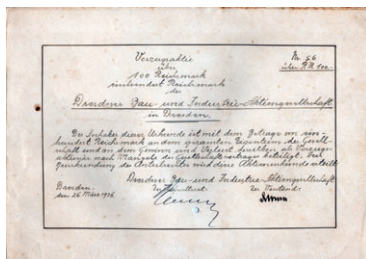 Vorzugsaktie
über
100 Reichmark
einhundert Reichsmark
der
Dresdner Bau- und Industrie-Aktiengesellschaft
in Dresden.
Nr. 56
über R.M. 100.-
Der Inhaber dieser Urkunde ist mit dem Betrage von ein-
hundert Reichsmark an dem gesamten Eigentum der Gesell-
schaft und an dem Gewinn und Verlust derselben als Vorzugs-
aktionär nach Massgabe des Gesellschaftsvertrages beteiligt. Zur
Beurkundung des Anteiles wird diese Aktienurkunde erteilt
Dresdner Bau- und Industrie-Aktiengesellschaft
Dresden
den 26. März 1926
Der Aufsichtsrat:
Der Vorstand: